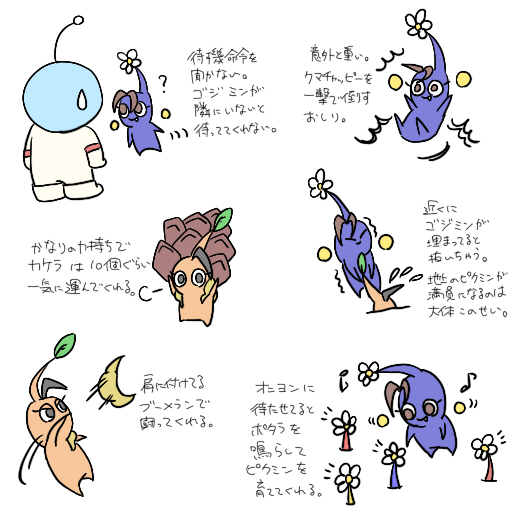 待機命令を
聞かない。
ゴジミンが
隣にいないと
待っててくれない。
?
意外と重い。
クマチャッピーを
一撃で倒す
おしり。
かなりの力持ちで
カケラは10個ぐらい
一気に運んでくれる。
近くに
ゴジミンが
埋まってると
拓いちゃう。
地上のピクミンが
満員になるのは
大体このせい。
肩に付けてる
ブーメランで
闘ってくれる。
オニヨンに
待たせてると
ポタラを
鳴らして
ピクミンを
育ててくれる。